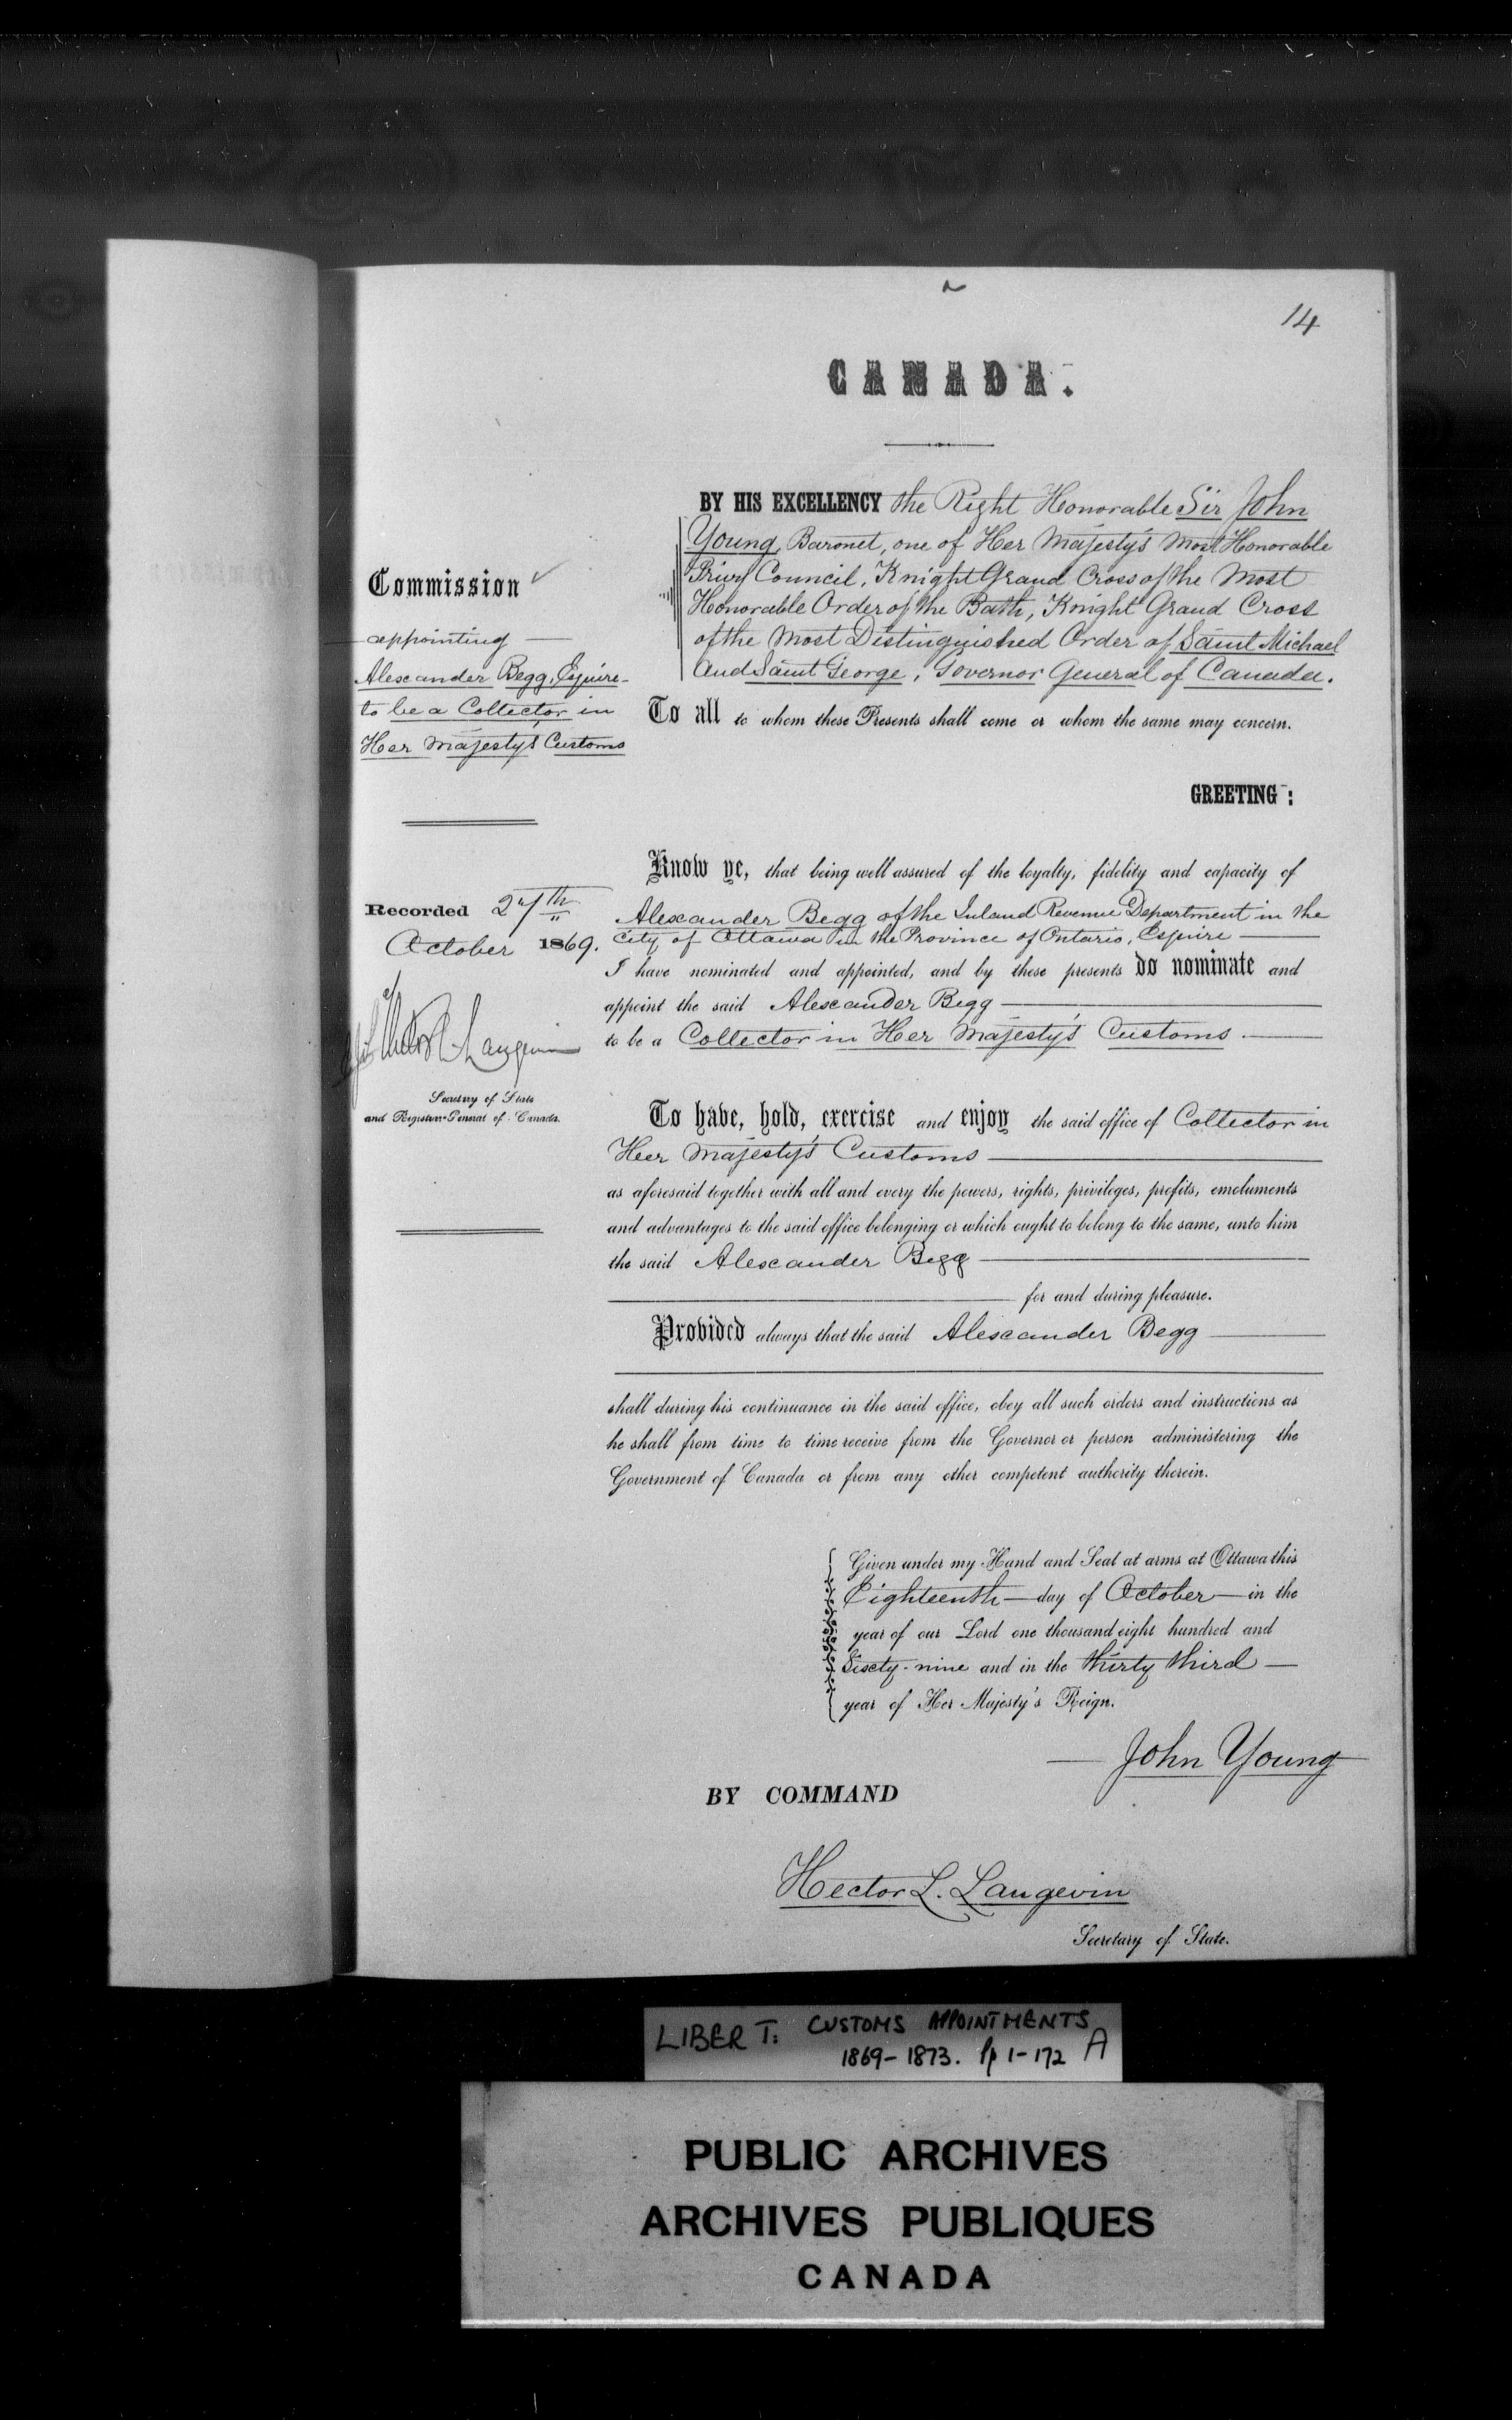 14
CANADA.
BY HIS EXCELLENCY the Right Honorable Sir John
Young, Baronet, one of Her Majesty's Most Honorable
Privy Council, Knight Grand Cross of the Most
Honorable Order of the Bath, Knight Grand Cross
of the Most Distinguished Order of Saint Michael
and Saint George, Governor General of Canada.
To all to whom these Presents shall come or whom the same may concern.
GREETING:
Commission
appointing
Alexander Begg, Esquire
to be a Collector in
Her Majesty's Customs
Recorded 27th
October 1869.
Langevin
Secretary of State
and Registrar-General of Canada.
Know ye, that being well assured of the loyalty, fidelity and capacity of
Alexander Begg of the Inland Revenue Department in the
City of Ottawa in the Province of Ontario, Esquire
I have nominated and appointed, and by these presents do nominate and
appoint the said Alexander Begg
to be a Collector in Her Majesty's Customs.
To have, hold, exercise and enjoy the said office of Collector in
Her Majesty's Customs
as aforesaid together with all and every the powers, rights, privileges, profits, emoluments
and advantages to the said office belonging or which ought to belong to the same, unto him
the said Alexander Begg
for and during pleasure.
Provided always that the said Alexander Begg
shall during his continuance in the said office, obey all such orders and instructions as
he shall from time to time receive from the Governor or person administering the
Government of Canada or from any other competent authority therein.
Given under my Hand and Seal at arms at Ottawa this
Eighteenth day of October in the
year of our Lord one thousand eight hundred and
Sixty-nine and in the thirty third
year of Her Majesty's Reign.
John Young
BY COMMAND
Hector L. Langevin
Secretary of State.
LIBER T: CUSTOMS APPOINTMENTS
1869-1873. pp 1-172 A
PUBLIC ARCHIVES
ARCHIVES PUBLIQUES
CANADA